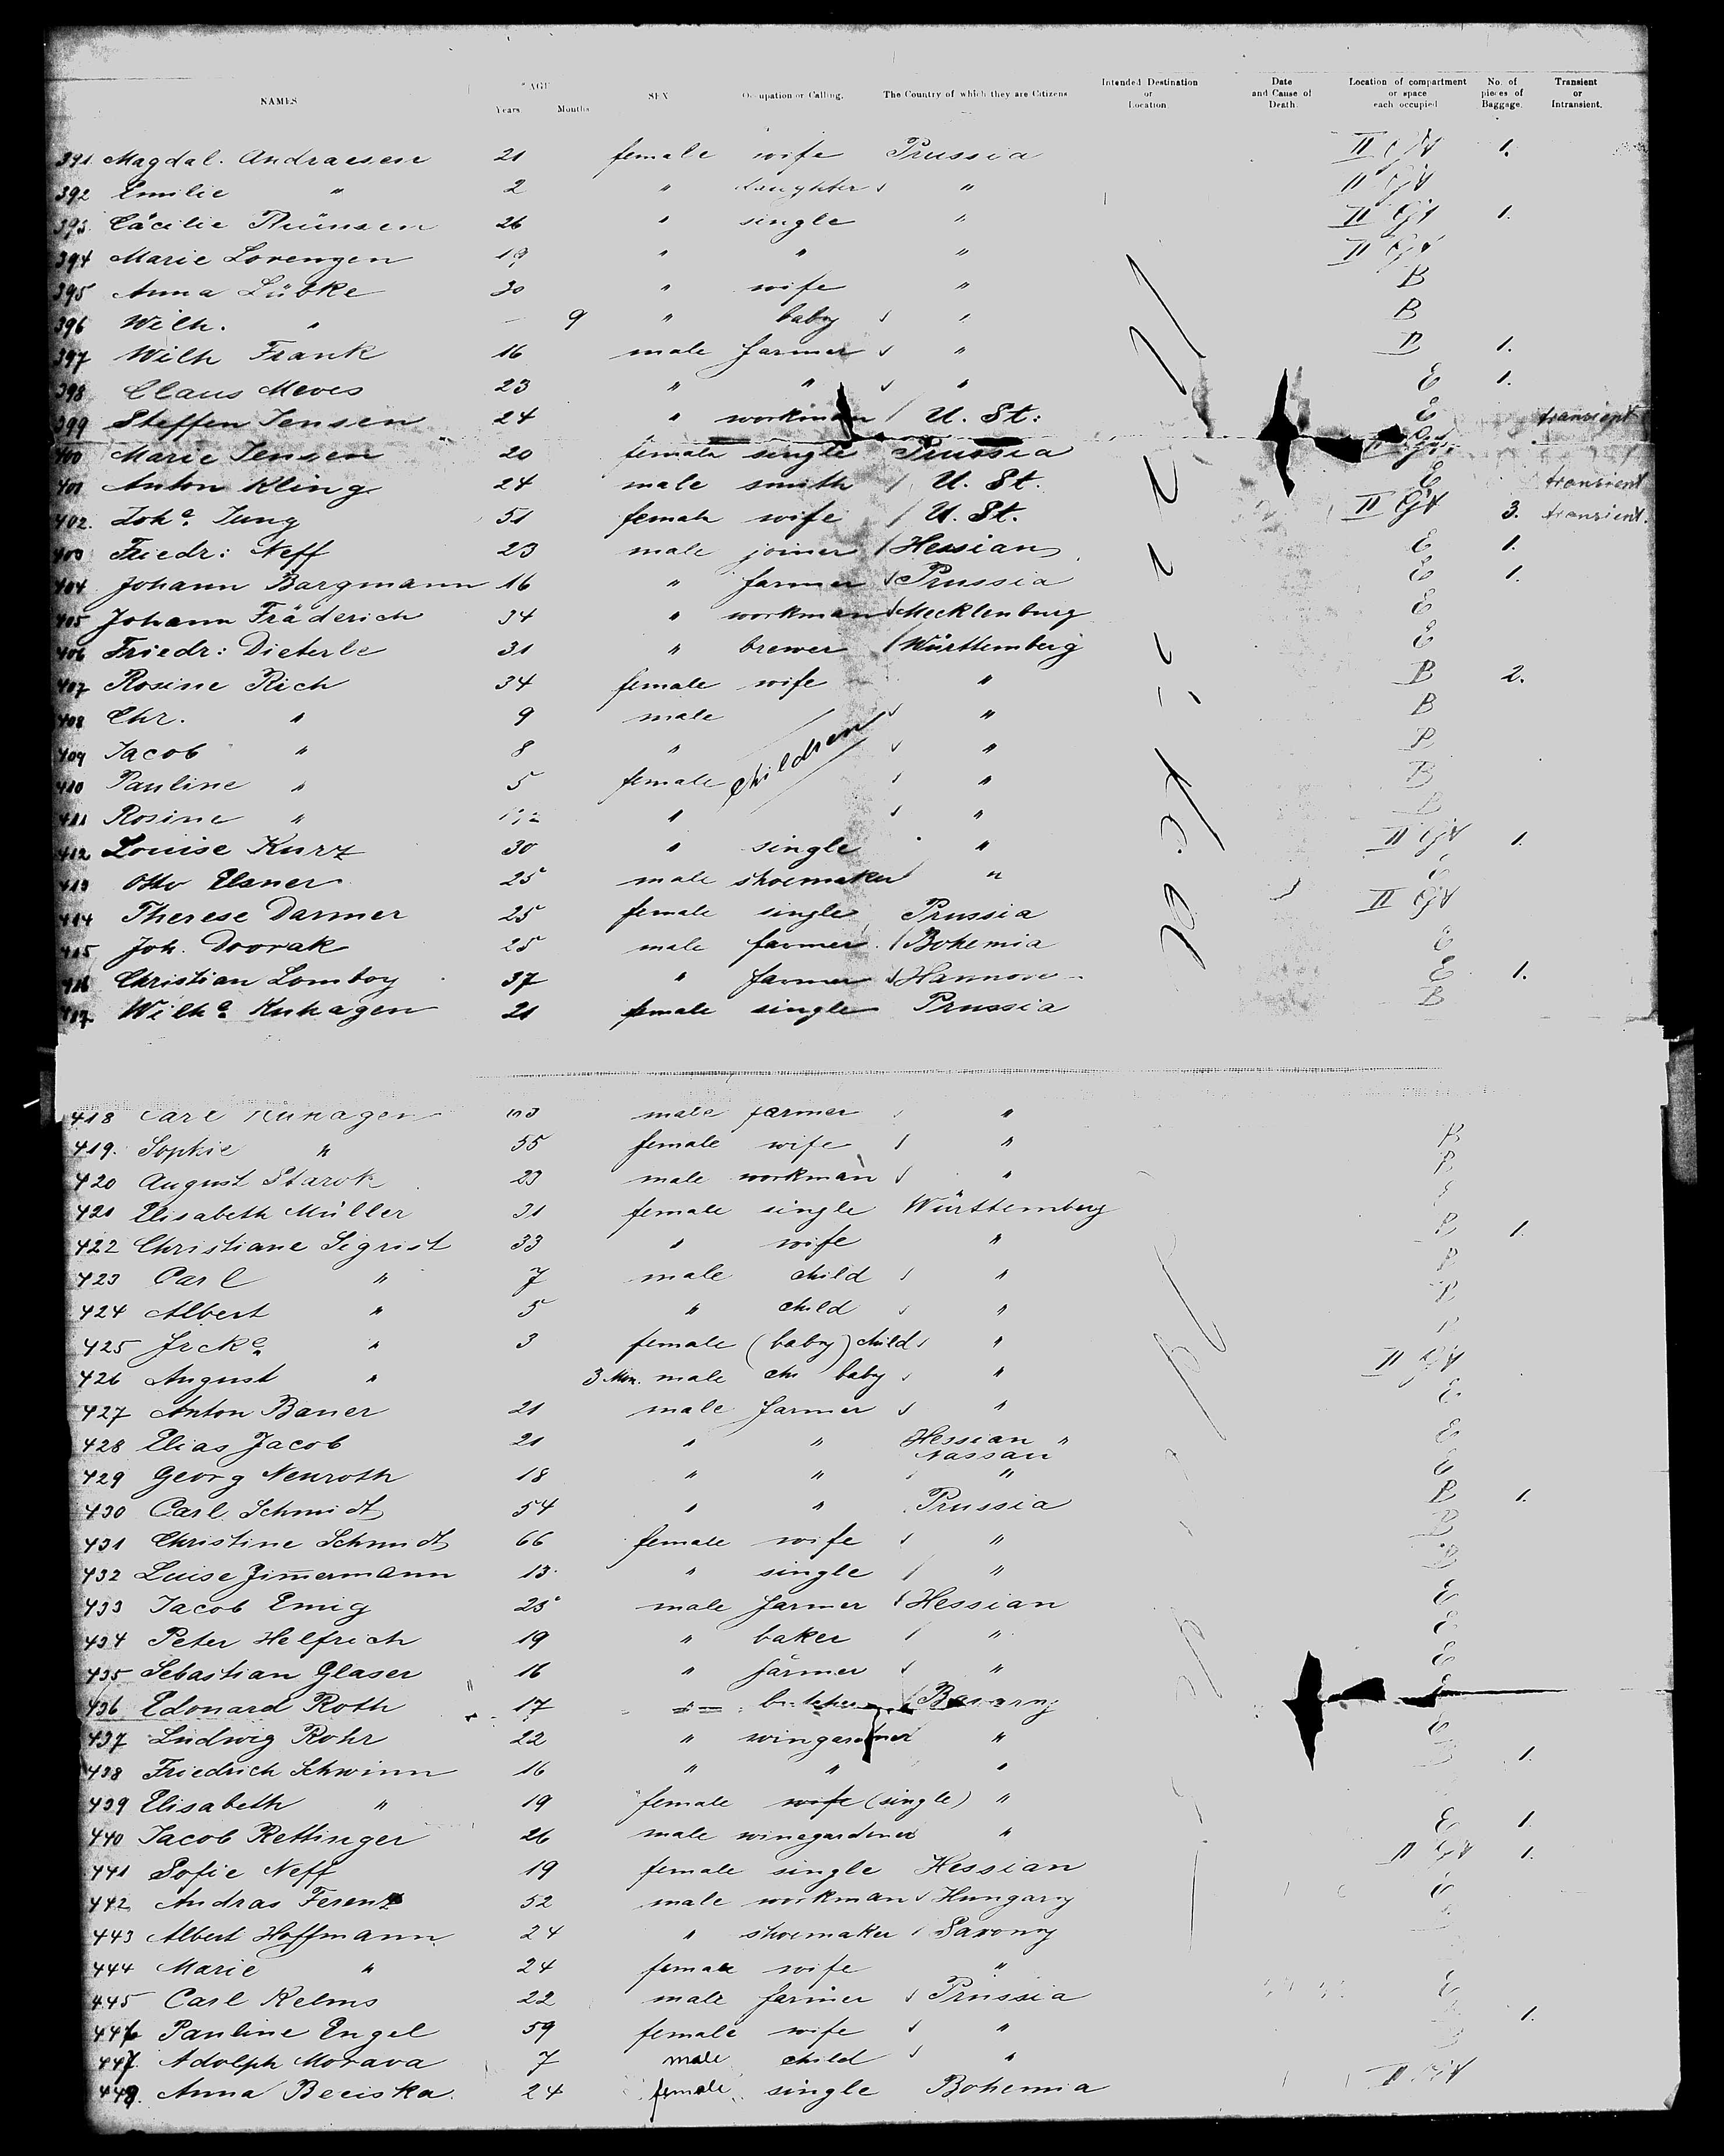 NAMES AGE Years Months SEX Occupation or Calling. The Country of which they are Citizens Intended Destination or Location Date and Cause of Death. Location of compartment or space each occupied No. of pieces of Baggage. Transient or Intransient.
391 Magdal. Andraesen 21 female wife Prussia II 1.
392 Emilie " 2 " daughter " II
393 Cäcilie Thiinsen 26 " single " II 1.
394 Marie Lorenzen 19 " " " II
395 Anna Lübke 30 " wife " B
396 Wilh. " — 9 " baby " B
397 Wilh Frank 16 male farmer " B 1.
398 Claus Meves 23 " " " E 1.
399 Steffen Jensen 24 " workman U. St: E transient
400 Marie Jensen 20 female single Prussia
401 Anton Kling 24 male smith U. St. E transient
402. Joha. Jung 51 female wife U. St. II 3. transient.
403 Friedr: Neff 23 male joiner Hessian E 1.
404 Johann Bargmann 16 " farmer Prussia E 1.
405 Johann Fräderich 34 " workman Mecklenburg E
406 Friedr: Dieterle 31 " brewer Württemberg E
407 Rosine Rich 34 female wife " B 2.
408 Chr. " 9 male children " B
409 Jacob " 8 " " B
410 Pauline " 5 female " B
411 Rosine " " " B
412 Louise Kurz 30 " single " II 1.
413 Otto Elsner 25 male shoemaker "
414 Therese Darmer 25 female single Prussia II
415 Joh. Dvorak 25 male farmer Bohemia E
416 Christian Lomboy 37 " farmer Hannover E 1.
417 Wilha. Kuhagen 21 female single Prussia B
418 Carl Kuhagen male farmer "
419. Sophie " 55 female wife " B
420 August Starok 23 male workman " B
421 Elisabeth Müller 31 female single Württemberg
422 Christiane Sigrist 33 " wife " B 1.
423 Carl " 7 male child " B
424 Albert " 5 " child " B
425 Frcke. " 3 female (baby) child "
426 August " 3 Mon. male baby " II
427 Anton Bauer 21 male farmer " E
428 Elias Jacob 21 " " Hessian " E
Nassau
429 Georg Neuroth 18 " " " E
430 Carl Schmidt 54 " " Prussia B 1.
431 Christine Schmidt 66 female wife " B
432 Luise Zimermann 13 " single " B
433 Jacob Emig 25 male farmer Hessian E
434 Peter Helfrich 19 " baker " E
435 Sebastian Glaser 16 " farmer " E
436 Edouard Roth 17 " butcher Bavary
437 Ludwig Rohr 22 " winegardner " E
438 Friedrich Schwinn 16 " " " 1.
439 Elisabeth " 19 female wife (single) "
440 Jacob Rettinger 26 male winegardener " E 1.
441 Sofie Neff 19 female single Hessian II 1.
442 Andras Ferenz 52 male workman Hungary E
443 Albert Hoffmann 24 " shoemaker Saxony
444 Marie " 24 female wife "
445 Carl Kelms 22 male farmer Prussia E
446 Pauline Engel 59 female wife " 1.
447. Adolph Morava 7 male child "
448. Anna Beciska 24 female single Bohemia II